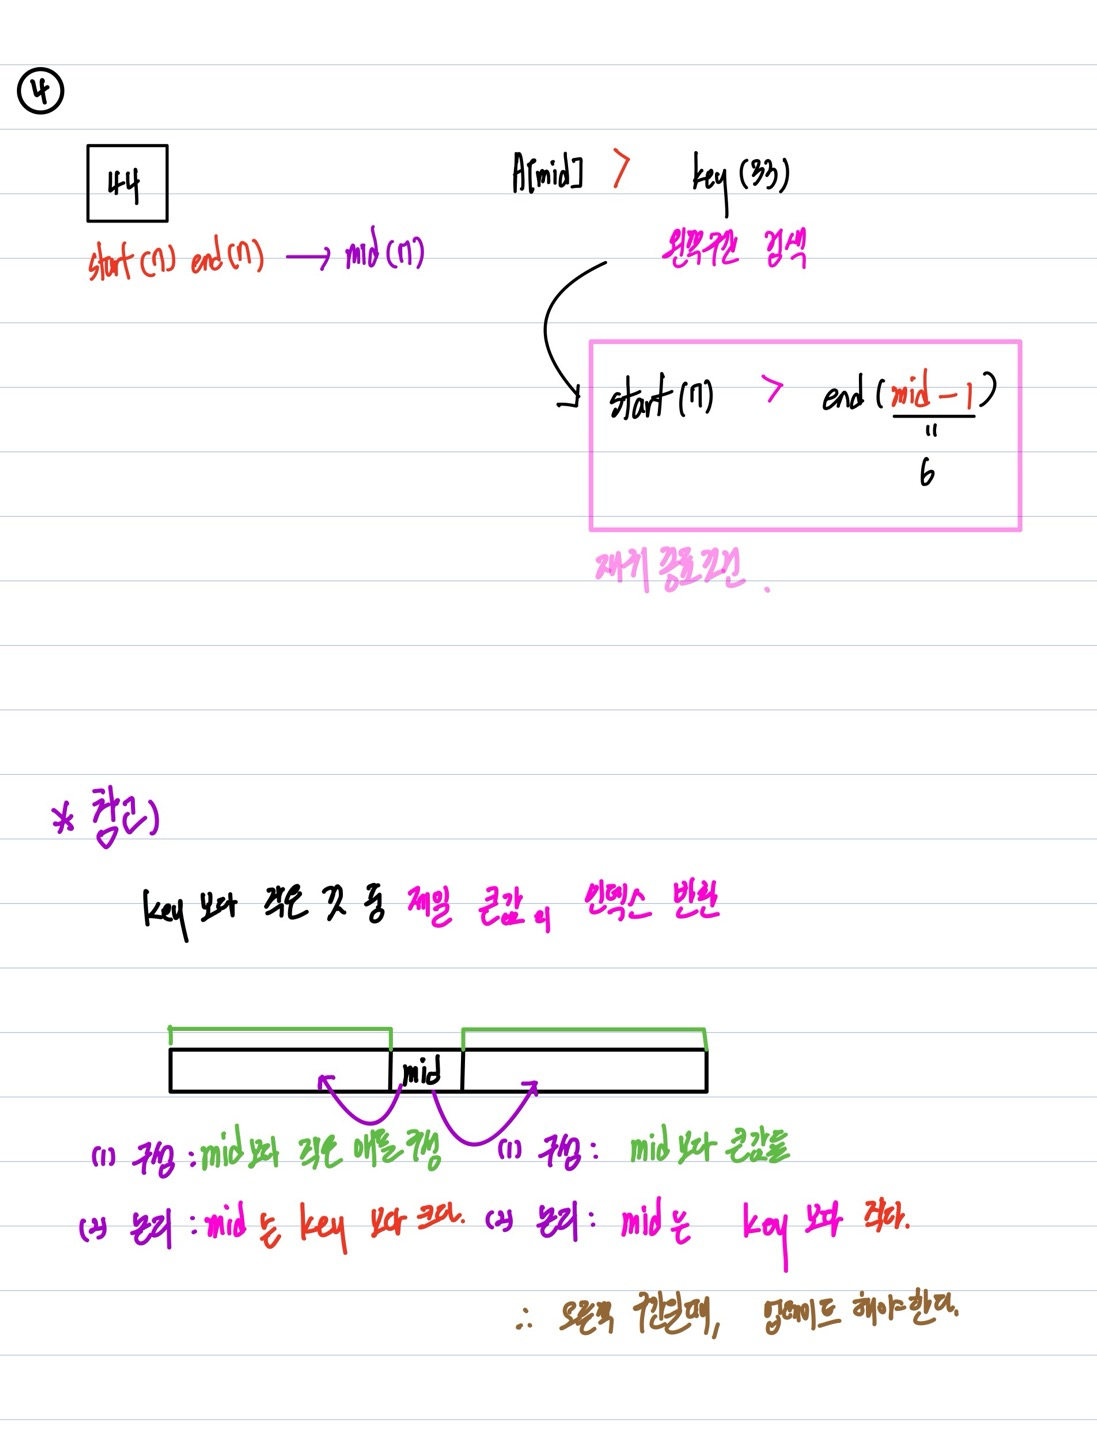 ④
44
A[mid] > key (33)
start (7) end (7) → mid (7)
왼쪽구간 검색
start (7) > end (mid - 1)
"
6
재귀 종료조건.
* 참고)
key 보다 작은 것 중 제일 큰값의 인덱스 반환
mid
(1) 구성 : mid보다 작은 애들 구성
(1) 구성 : mid 보다 큰값들
(2) 논리 : mid 는 key 보다 크다.
(2) 논리 : mid 는 key 보다 작다.
∴ 오른쪽 구간일때, 업데이트 해야한다.